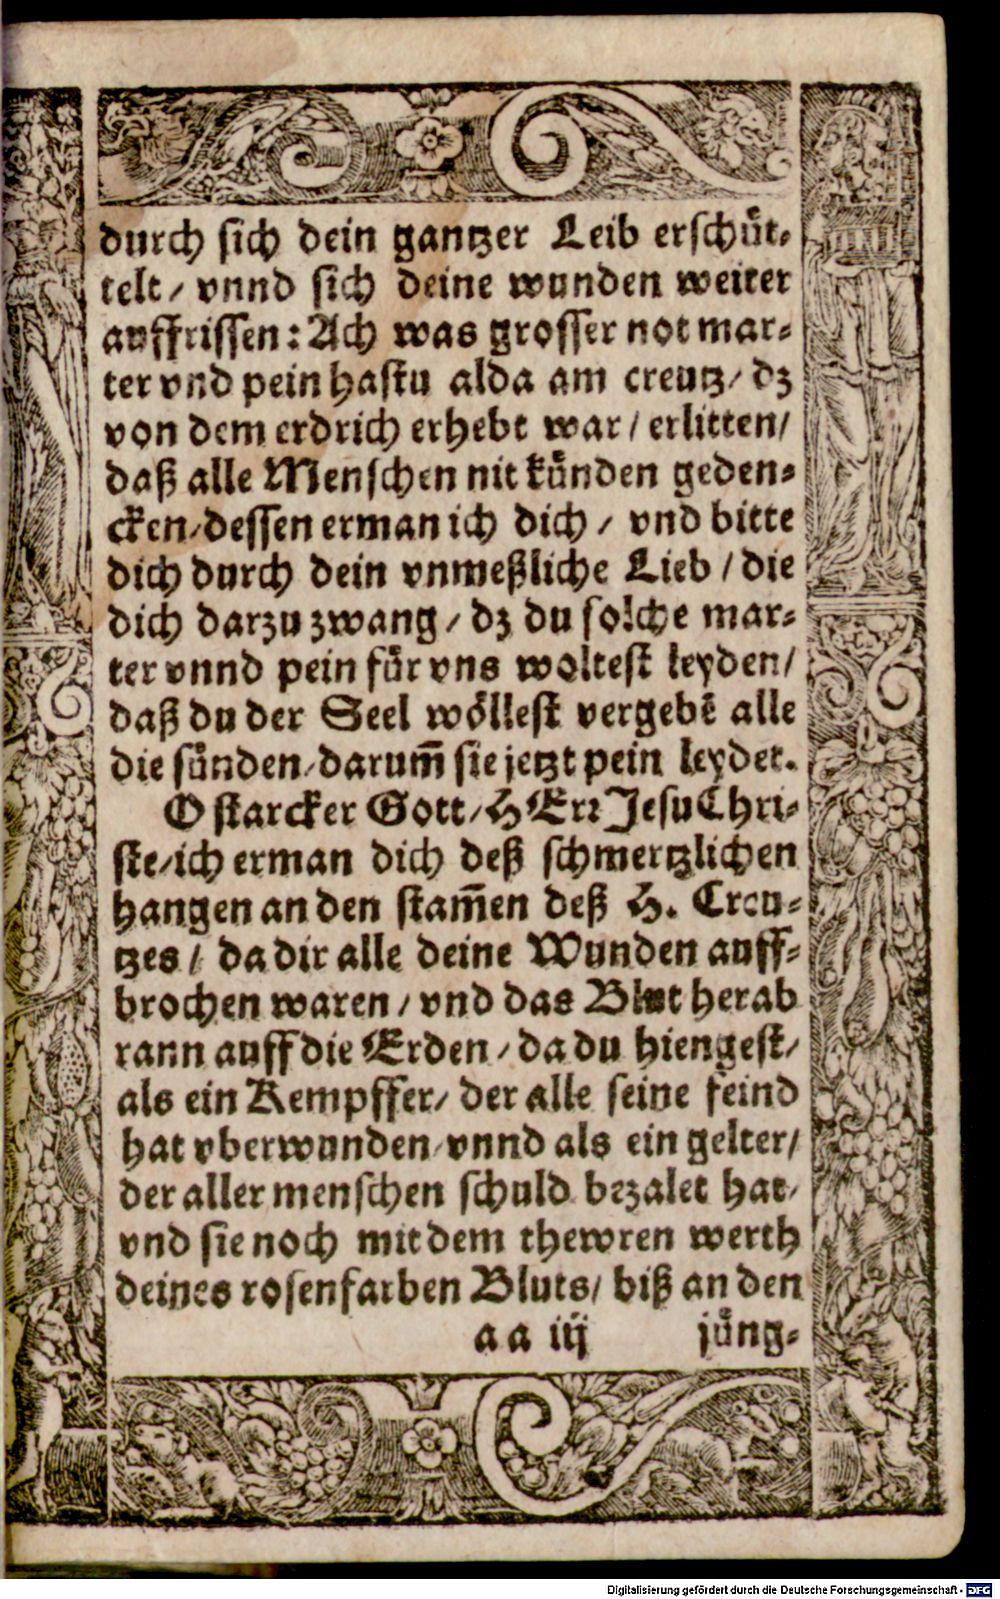 durch sich dein gantzer Leib erschuͤt⸗
telt / vnnd sich deine wunden weiter
auffrissen: Ach was grosser not mar⸗
ter vnd pein hastu alda am creutz / dz
von dem erdrich erhebt war / erlitten /
daß alle Menschen nit kuͤnden geden⸗
cken / dessen erman ich dich / vnd bitte
dich durch dein vnmeßliche Lieb / die
dich darzu zwang / dz du solche mar⸗
ter vnnd pein fuͤr vns woltest leyden /
daß du der Seel woͤllest vergebẽ alle
die suͤnden / darum̃ sie jetzt pein leydet.
O starcker Gott / HErr Jesu Chri⸗
ste / ich erman dich deß schmertzlichen
hangen an den stam̃en deß H. Creu⸗
tzes / da dir alle deine Wunden auff⸗
brochen waren / vnd das Blut herab
rann auff die Erden / da du hiengest /
als ein Kempffer / der alle seine feind
hat vberwunden / vnnd als ein gelter /
der aller menschen schuld bezalet hat /
vnd sie noch mit dem thewren werth
deines rosenfarben Bluts / biß an den
aa iij juͤng⸗
Digitalisierung gefördert durch die Deutsche Forschungsgemeinschaft - DFG